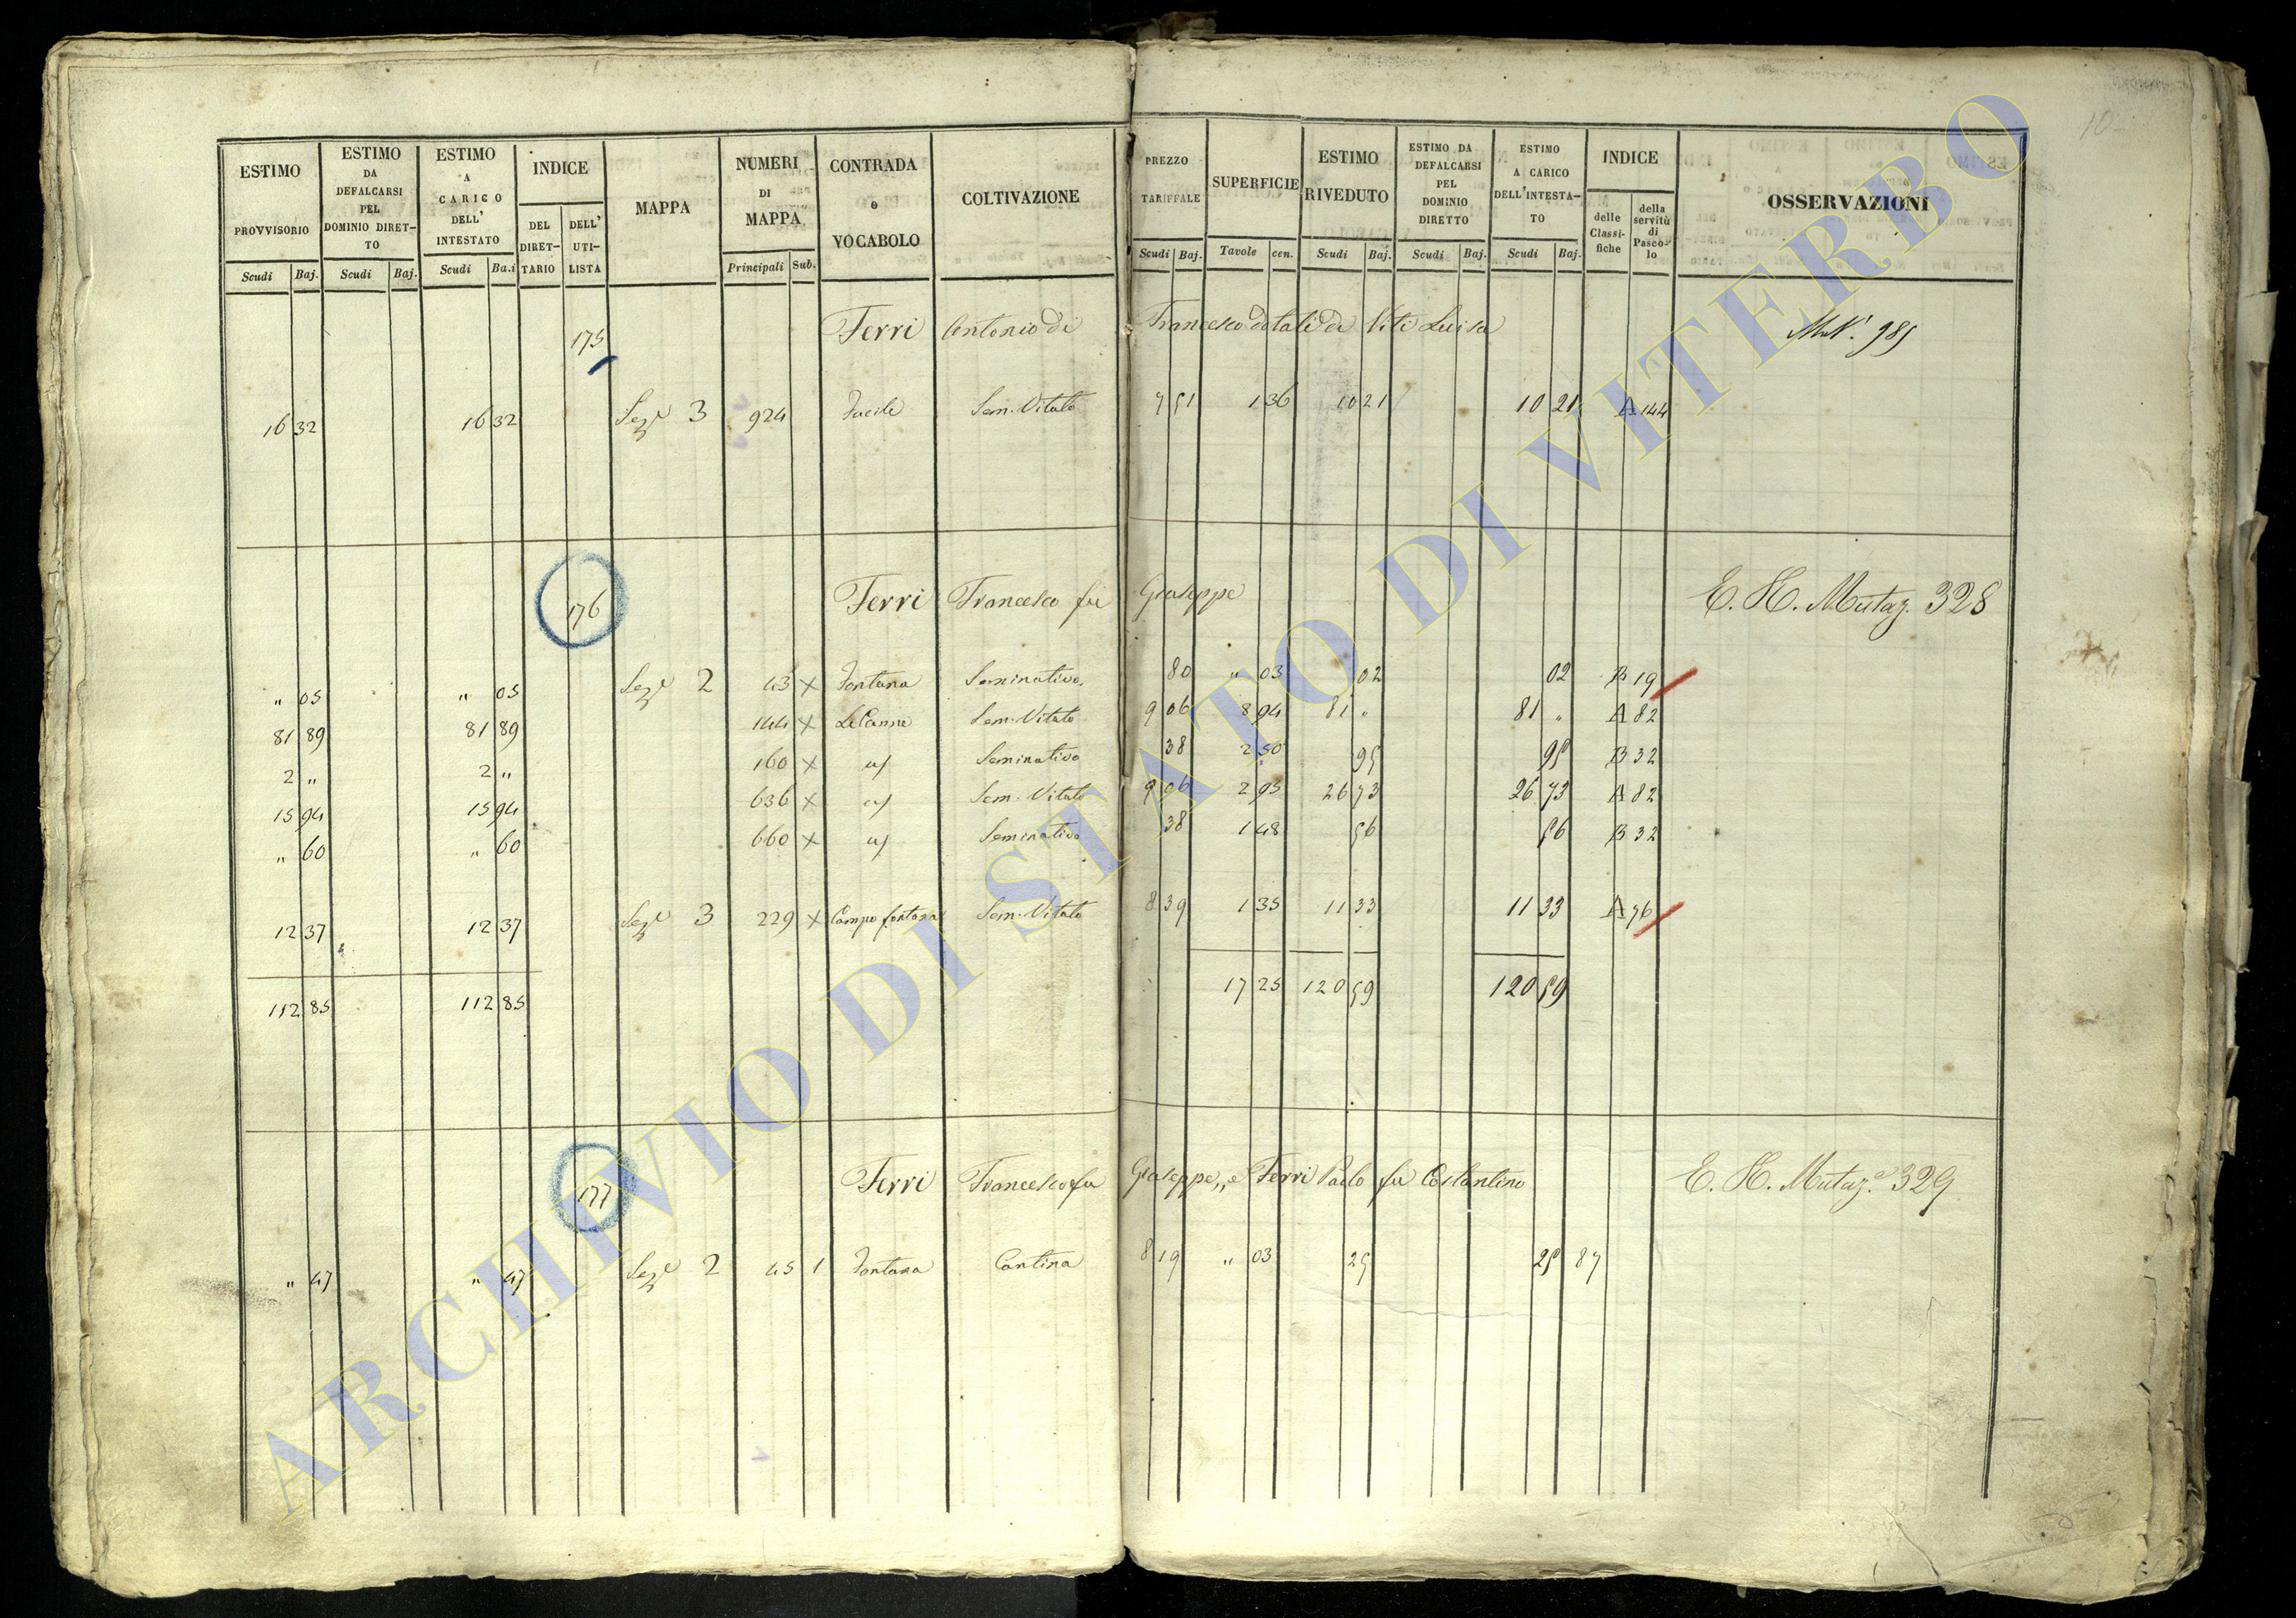 10
ESTIMO PROVVISORIO Scudi Baj. ESTIMO DA DEFALCARSI PEL DOMINIO DIRETTO Scudi Baj. ESTIMO A CARICO DELL' INTESTATO Scudi Ba.i INDICE DEL DIRETTARIO DELL' UTILISTA MAPPA NUMERI DI MAPPA Principali Sub. CONTRADA e VOCABOLO COLTIVAZIONE PREZZO TARIFFALE Scudi Baj. SUPERFICIE Tavole cen. ESTIMO RIVEDUTO Scudi Baj. ESTIMO DA DEFALCARSI PEL DOMINIO DIRETTO Scudi Baj. ESTIMO A CARICO DELL'INTESTATO Scudi Baj. INDICE delle Classifiche della servitù di Pascolo OSSERVAZIONI
175 Ferri Antonio di Francesco dotali di Viti Luisa
16 32 16 32 Sez.e 3 924 Sem. Vitato 7 51 1 36 10 21 10 21 A 144
176 Ferri Francesco fu Giuseppe E. H. Mutaz. 328
" 05 " 05 Sez.e 2 43 x Fontana Seminativo 80 " 03 02 02 B 19
81 89 81 89 144 x Le Canne Sem. Vitato 9 06 8 94 81 " 81 " A 82
2 " 2 " 160 x Seminativo 38 2 50 95 95 B 32
15 94 15 94 636 x Sem. Vitato 9 06 2 95 26 73 26 73 A 82
" 60 " 60 660 x Seminativo 38 1 48 56 56 B 32
12 37 12 37 Sez.e 3 229 x Campo fontana Sem. Vitato 8 39 1 35 11 33 11 33 A 76
112 85 112 85 17 25 120 59 120 59
177 Ferri Francesco fu Giuseppe, e Ferri Paolo fu Costantino E. H. Mutaz.e 329
" 47 " 47 Sez.e 2 45 1 Fontana Cantina 8 19 " 03 25 25 87
ARCHIVIO DI STATO DI VITERBO